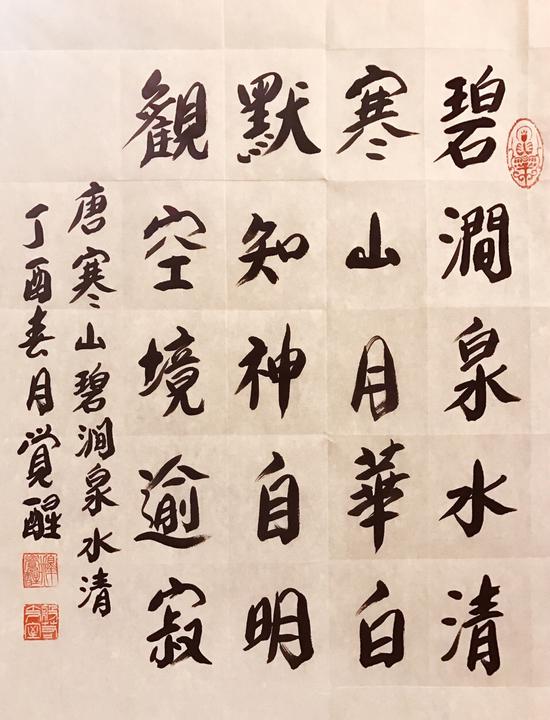 碧澗泉水清
寒山月華白
默知神自明
観空境逾寂
唐寒山碧澗泉水清
丁酉春月覚醒